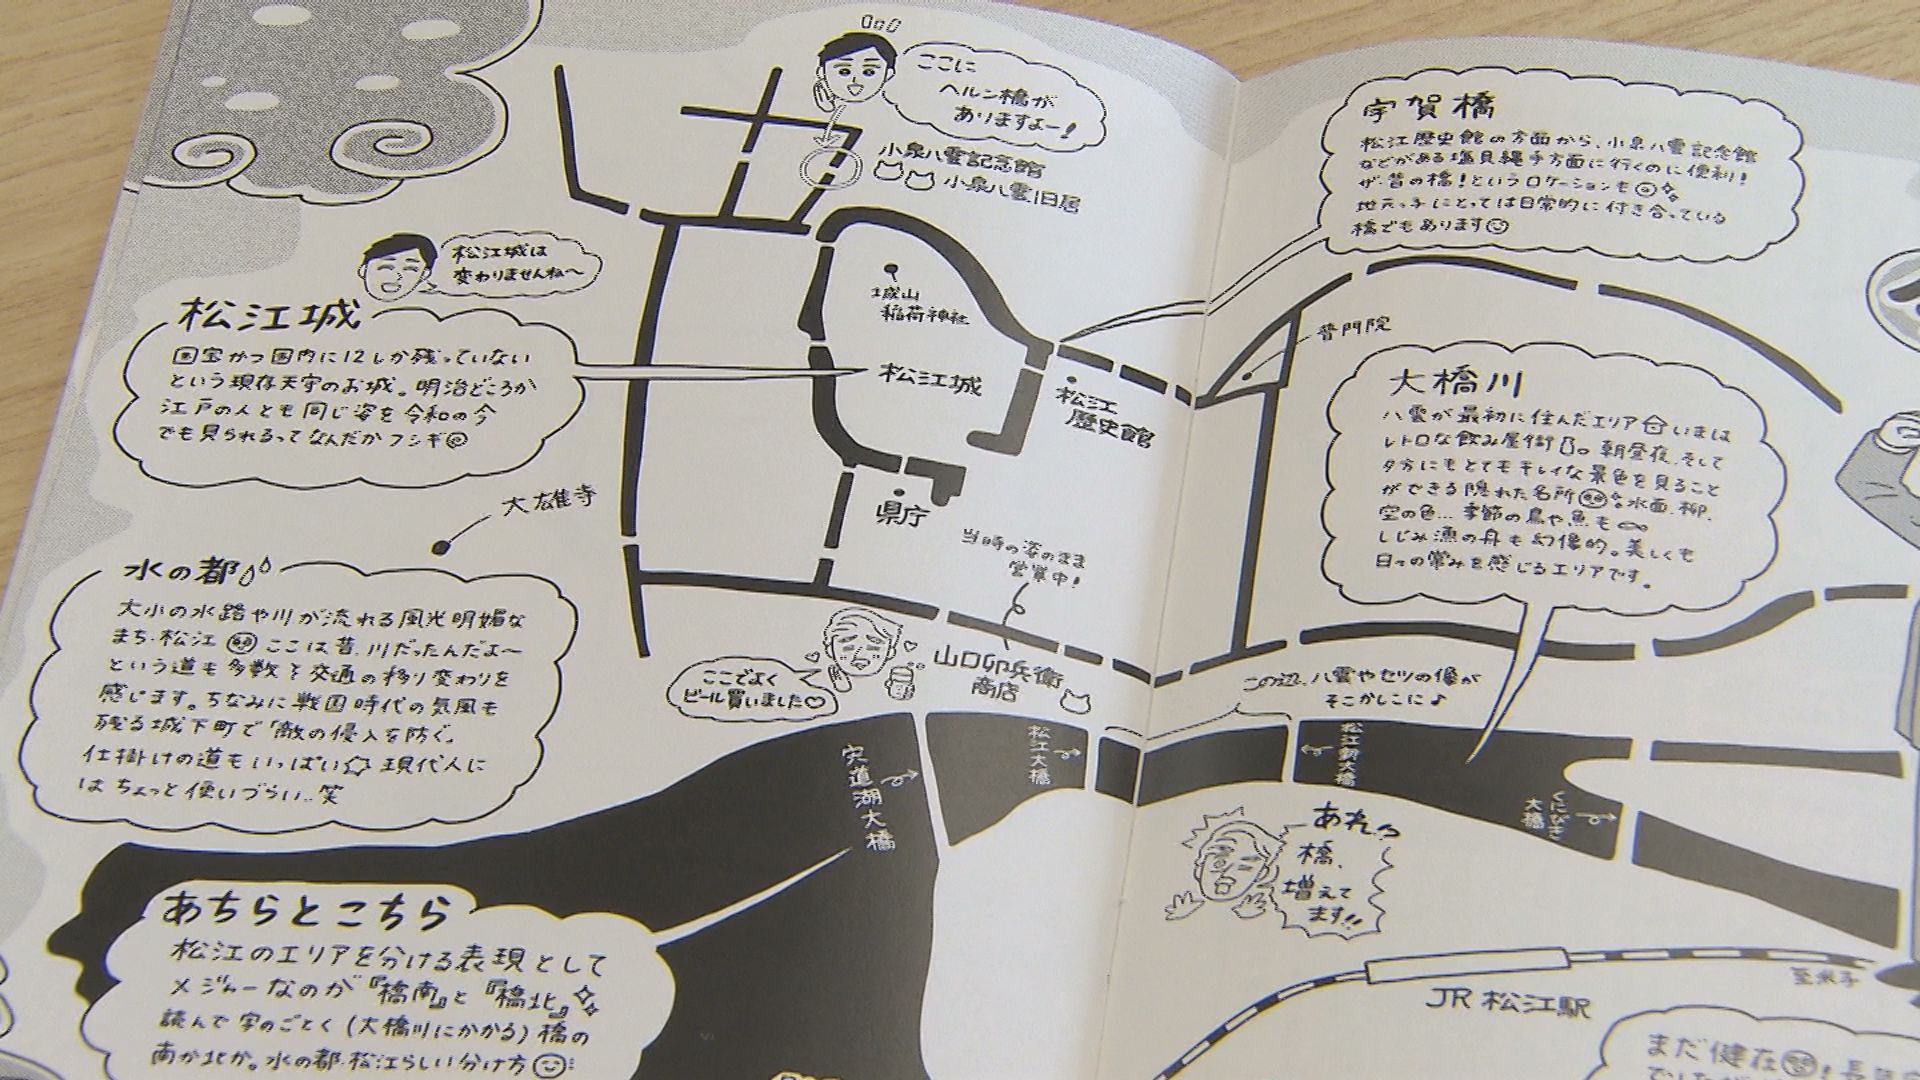 ここに
ヘルン橋が
ありますよー!
小泉八雲記念館
小泉八雲旧居
宇賀橋
松江歴史館の方面から、小泉八雲記念館
などがある塩見縄手方面に行くのに便利!
が、昔の橋!というロケーションも
地元っ子にとっては日常的に付き合っている
橋でもあります
松江城は
変わりませんね〜
松江城
国宝かつ国内に12しか残っていない
という現存天守のお城。明治どころか
江戸の人とも同じ姿を令和の今
でも見られるってなんだかフシギ
城山
稲荷神社
松江城
松江
歴史館
普門院
県庁
大雄寺
大橋川
八雲が最初に住んだエリア いまは
レトロな飲み屋街。朝昼夜、そして
夕方にもとてもキレイな景色を見ること
ができる隠れた名所 水面、柳、
空の色…季節の鳥や魚も
しじみ漁の舟も幻像的。美しくも
日々の営みを感じるエリアです。
当時の姿のまま
営業中!
水の都
大小の水路や川が流れる風光明媚な
まち・松江 ここは昔、川だったんだよ〜
という道も多数で交通の移り変わりを
感じます。ちなみに戦国時代の気風も
残る城下町で「敵の侵入を防ぐ」
仕掛けの道もいっぱい 現代人に
はちょっと使いづらい…笑
ここでよく
ビール買いました♡
山口卯兵衛
商店
この辺、八雲やセツの像が
そこかしこに♪
宍道湖大橋
松江大橋
松江新大橋
くにびき
大橋
あれっ
橋、
増えて
ます!!
あちらとこちら
松江のエリアを分ける表現として
メジャーなのが『橋南』と『橋北』
読んで字のごとく(大橋川にかかる)橋の
南か北か。水の都・松江らしい分け方
JR 松江駅
至米子
まだ健在